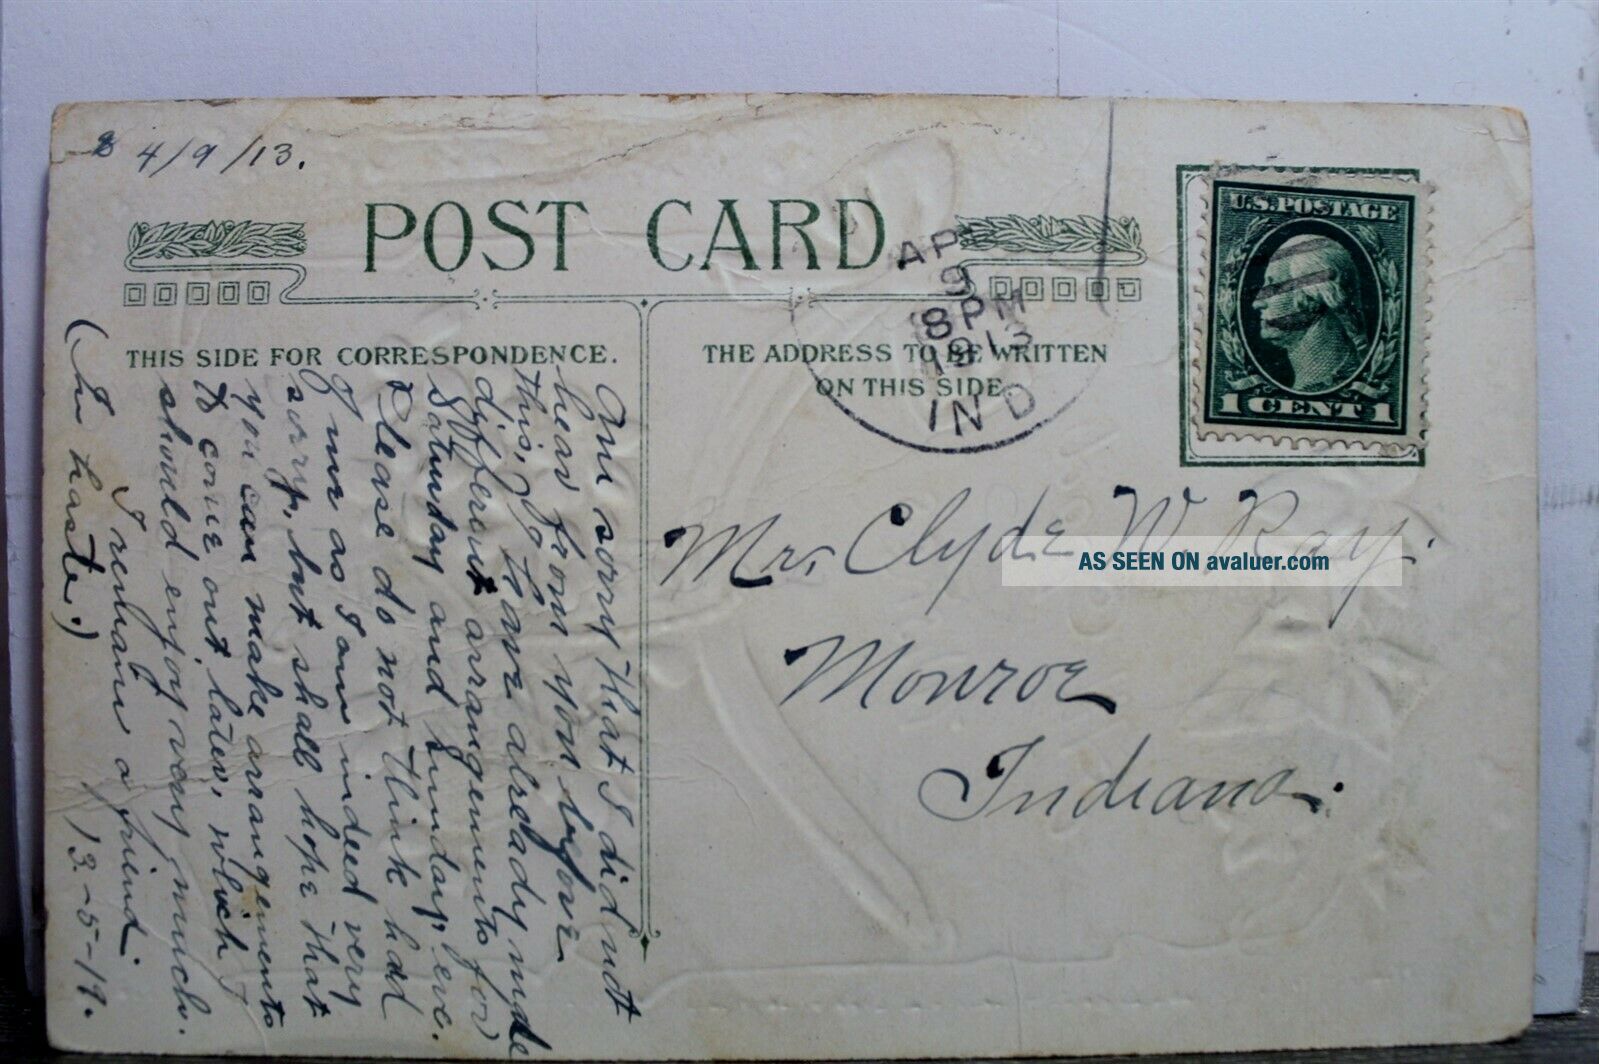 4/9/13.
POST CARD
THIS SIDE FOR CORRESPONDENCE.
THE ADDRESS TO BE WRITTEN
ON THIS SIDE.
AP
9
8 PM
1913
IND
U.S. POSTAGE
1 CENT 1
Am sorry that I did not
hear from you before
this, so have already made
different arrangements for
Saturday and Sunday, eve.
Please do not think hard
of me as I am indeed very
sorry, but shall hope that
you can make arrangements
to come out, later, which I
should enjoy very much.
I remain a friend
13.-5-19.
(In haste.)
Mr. Clyde W. Ray.
Monroe
Indiana.
AS SEEN ON avaluer.com